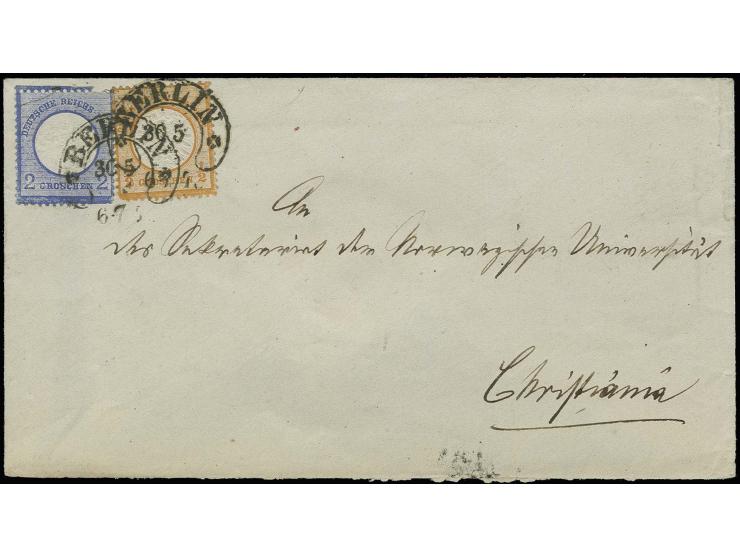 DEUTSCHE REICHS
2 GROSCHEN 2
BERLIN
30 5
6-7
BERLIN
30 5
6-7
2
An
das Sekretariat der Norwegischen Universität
Christiania